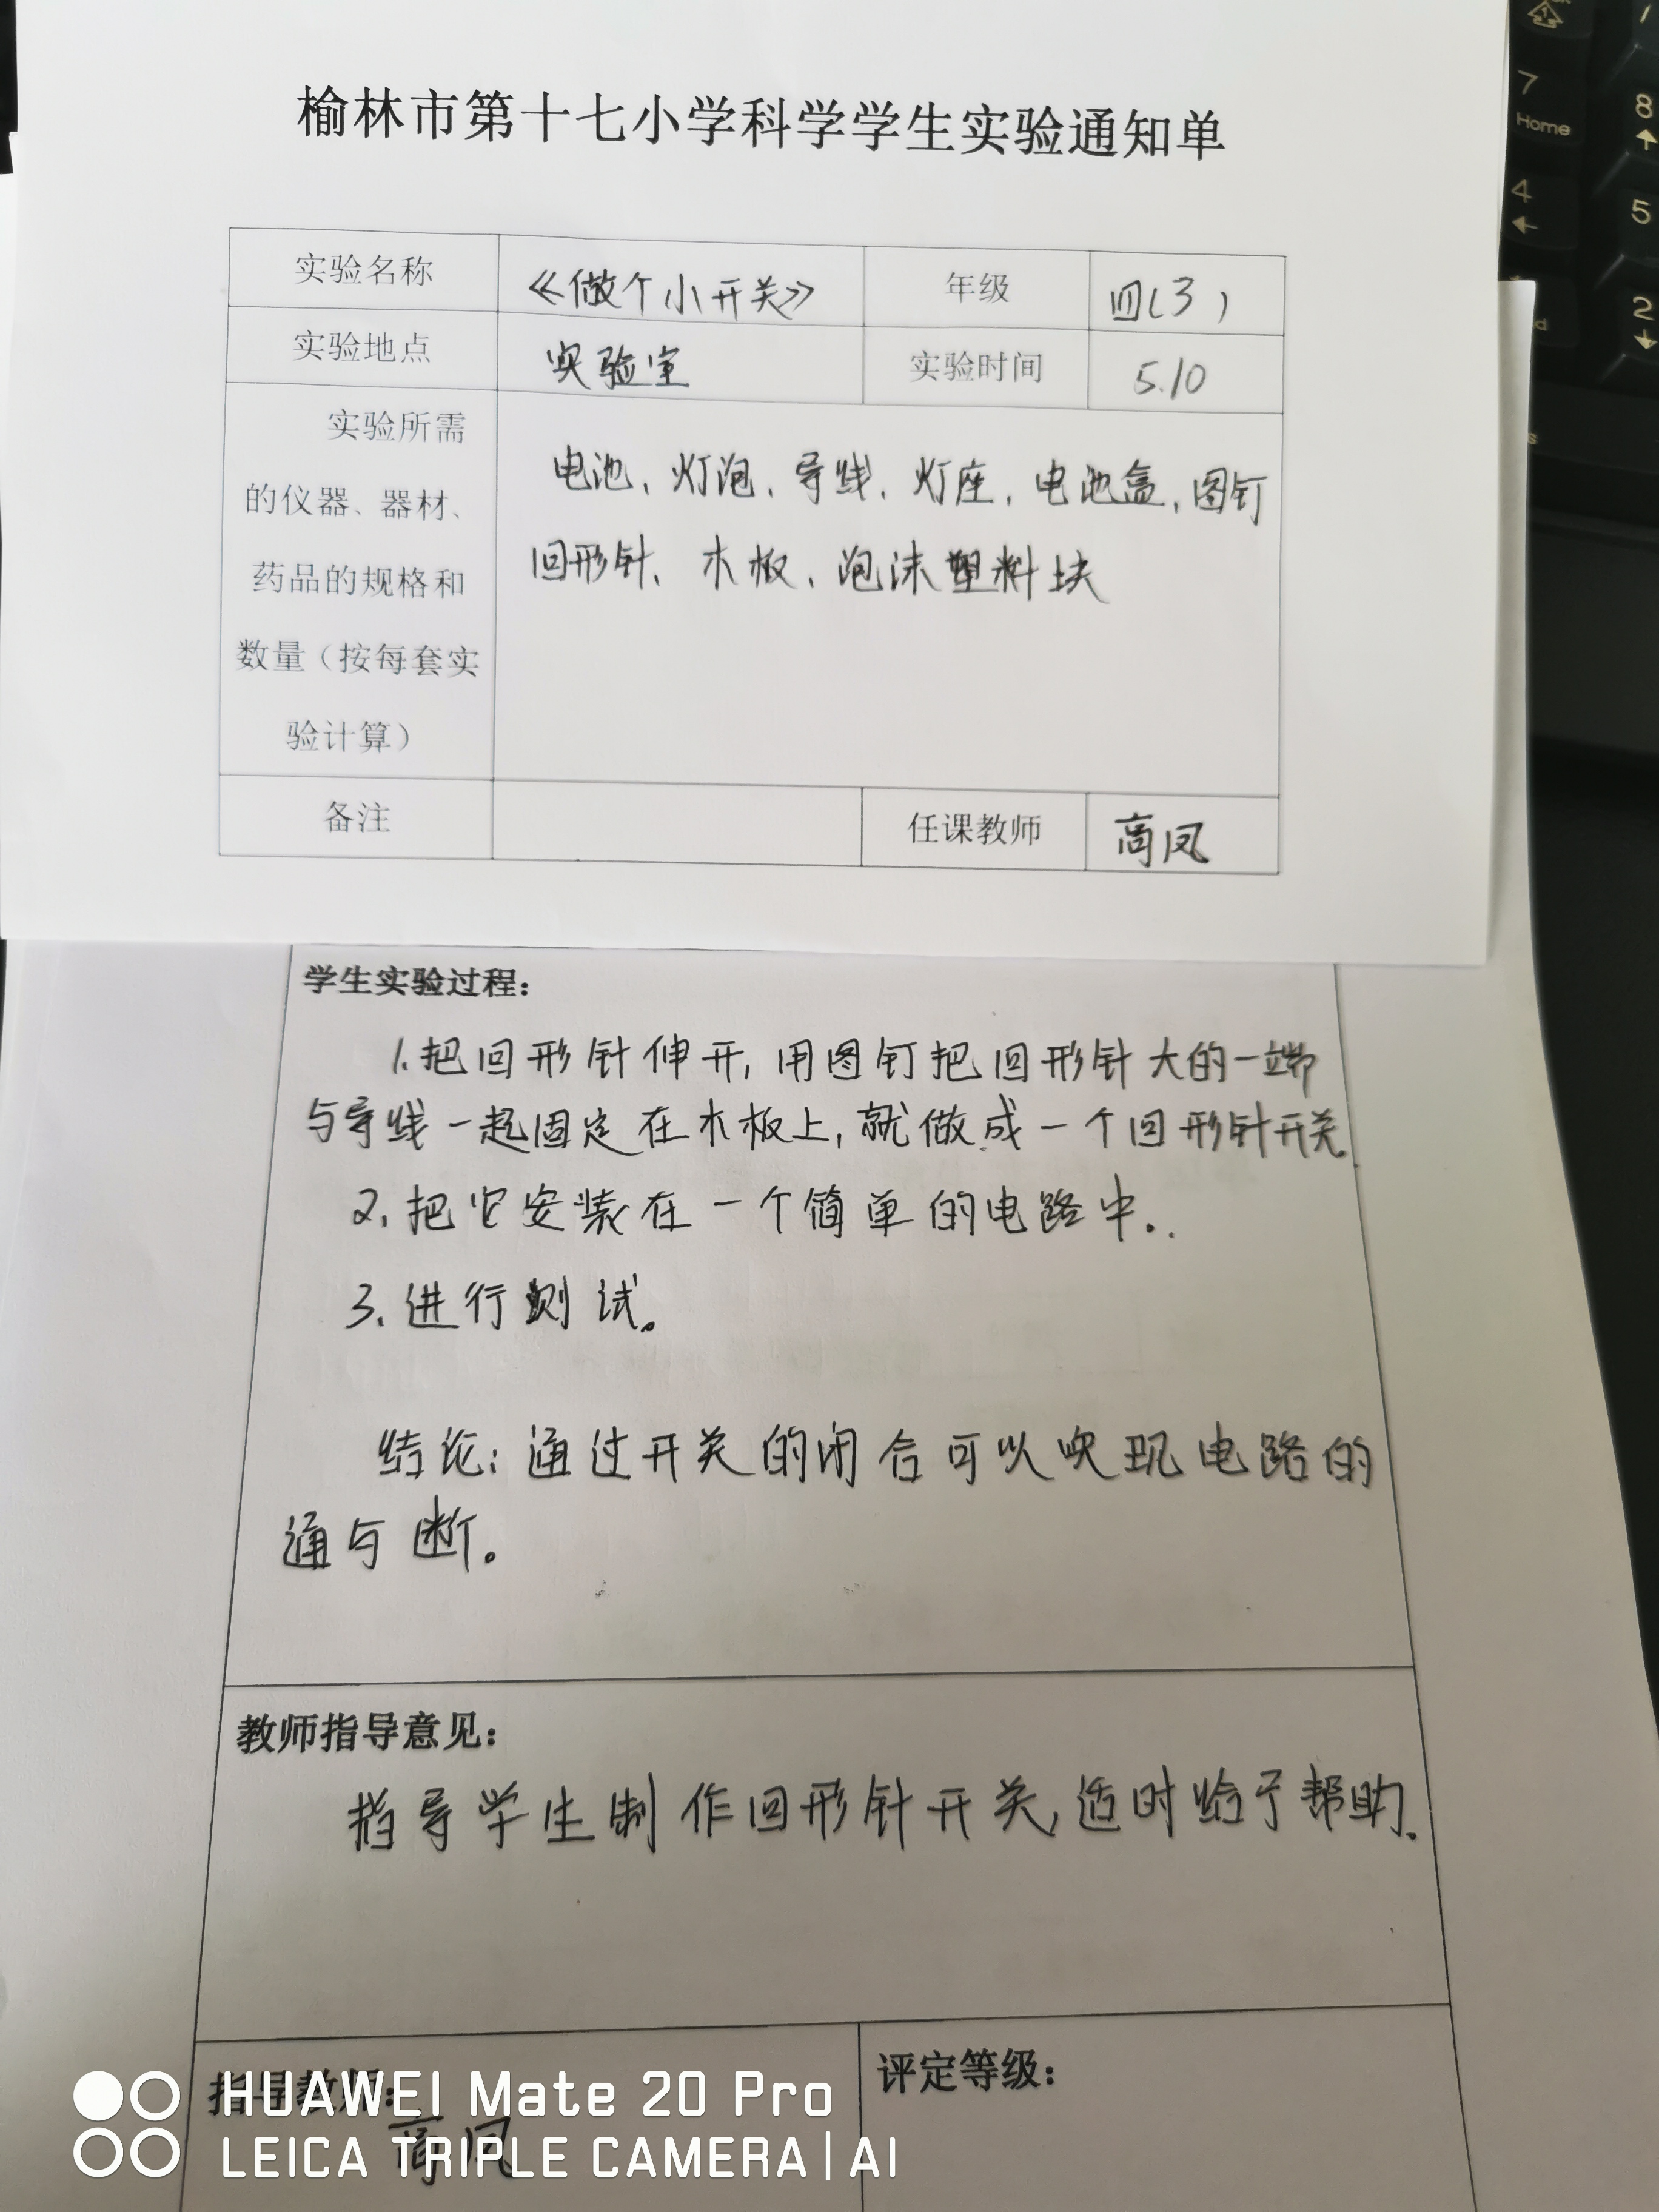 榆林市第十七小学科学学生实验通知单
实验名称 《做个小开关》 年级 四(3)
实验地点 实验室 实验时间 5.10
实验所需
的仪器、器材、
药品的规格和
数量（按每套实
验计算）
电池、灯泡、导线、灯座、电池盒、图钉
回形针、木板、泡沫塑料块
备注 任课教师 高凤
学生实验过程：
1.把回形针伸开,用图钉把回形针大的一端
与导线一起固定在木板上,就做成一个回形针开关.
2.把它安装在一个简单的电路中.
3.进行测试。
结论:通过开关的闭合可以实现电路的
通与断。
教师指导意见：
指导学生制作回形针开关,适时给予帮助.
指导教师： 高凤
评定等级：
HUAWEI Mate 20 Pro
LEICA TRIPLE CAMERA | AI
7
Home
8
4
5
2